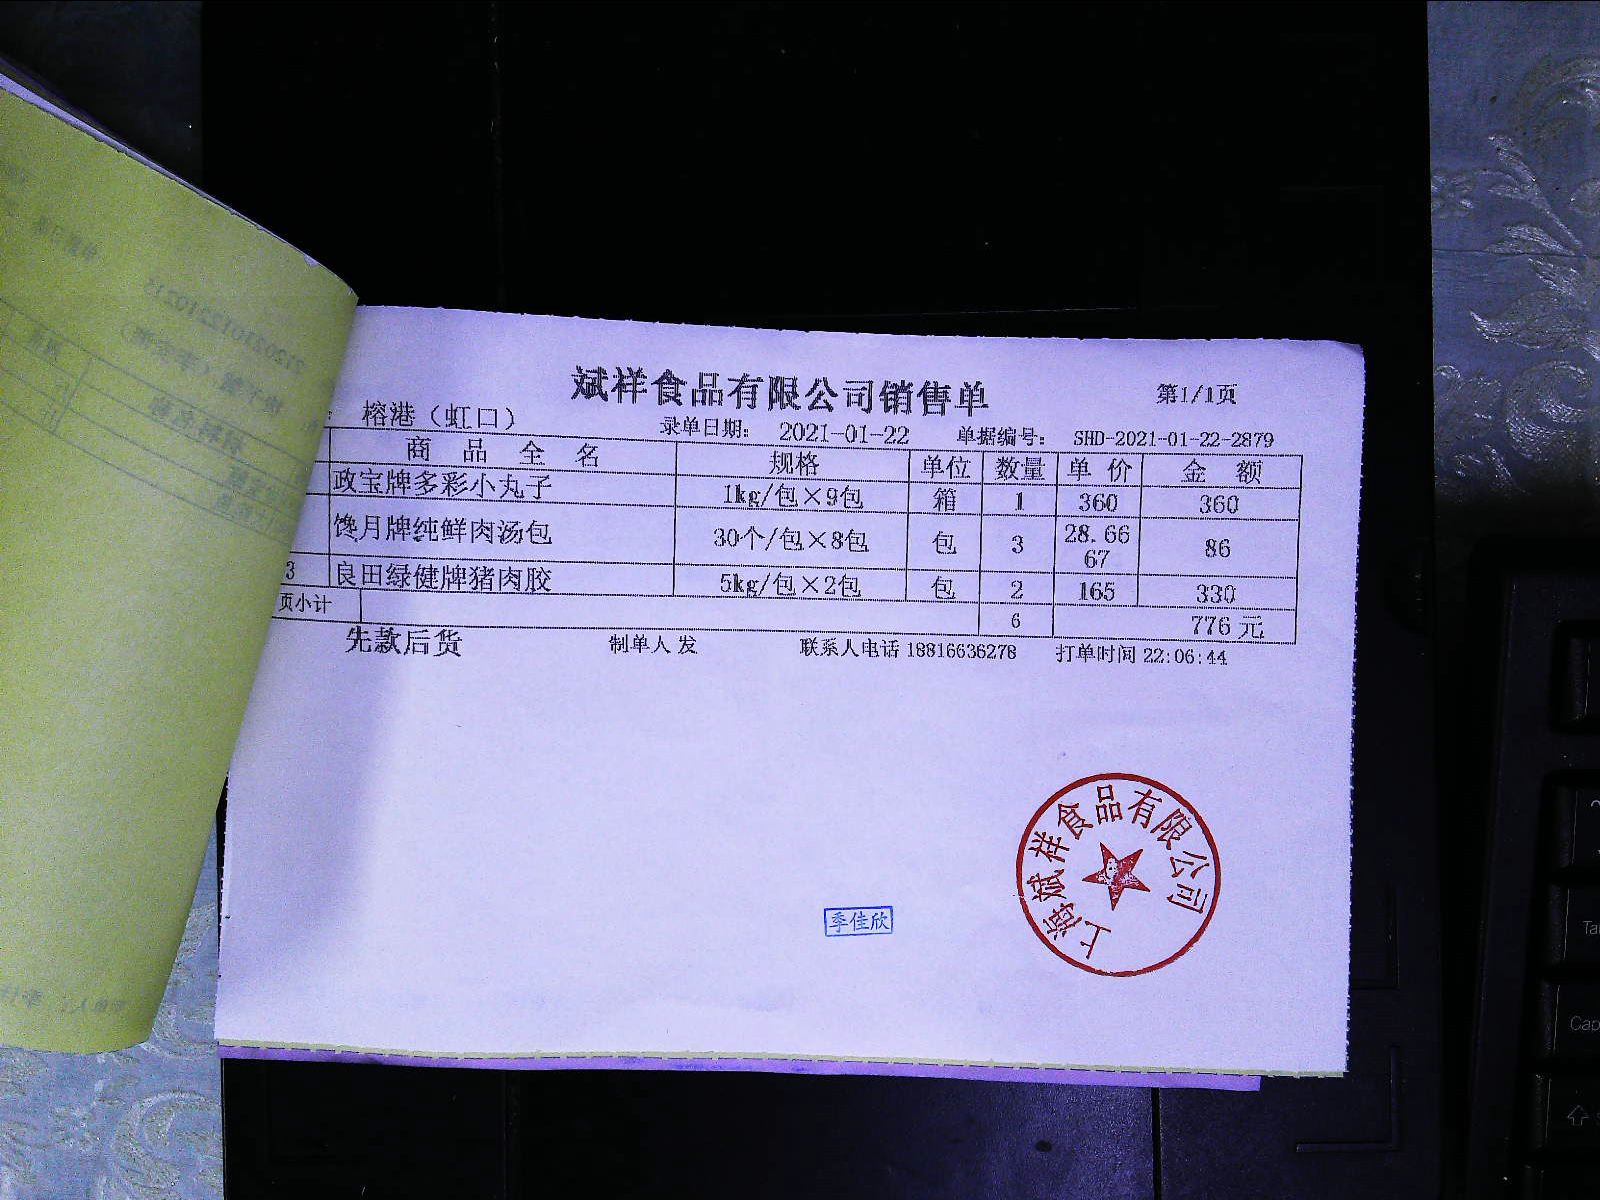 斌祥食品有限公司销售单
第1/1页
: 榕港（虹口） 录单日期: 2021-01-22 单据编号: SHD-2021-01-22-2879
商品全名 规格 单位 数量 单价 金额
政宝牌多彩小丸子 1kg/包×9包 箱 1 360 360
馋月牌纯鲜肉汤包 30个/包×8包 包 3 28.6667 86
3 良田绿健牌猪肉胶 5kg/包×2包 包 2 165 330
页小计 6 776元
先款后货 制单人 发 联系人电话 18816636278 打单时间 22:06:44
上海斌祥食品有限公司
季佳欣